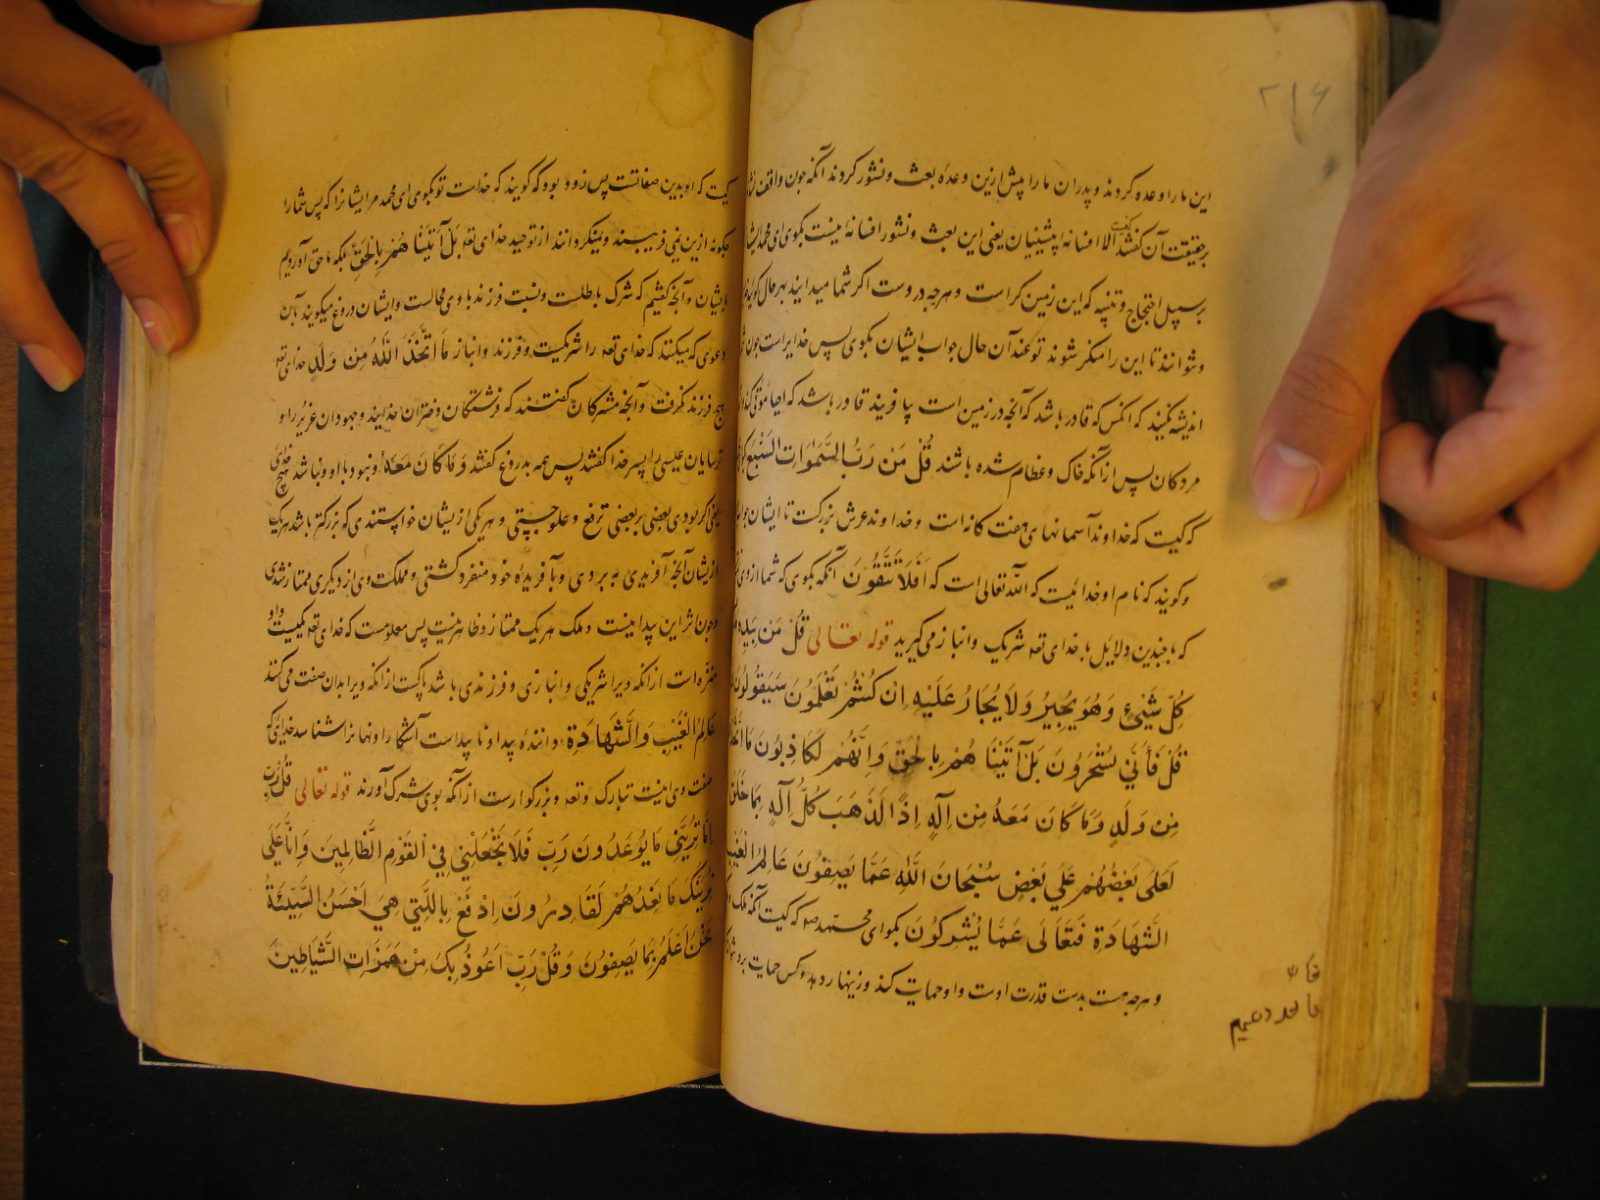 ۲۱۶
این ما را وعده کردند و پدران ما را پیش ازین وعده بعث و نشور کردند آنکه چون واقف
بر حقیقت آن کفتند الا افسانهٔ پیشینیان یعنی این بعث و نشور افسانهٔ میست بکوی ای محمد
بر سبیل احتجاج و تنبیه که این زمین کراست و هرچه دروست اکر شما میدانید بهر حال
و نتوانند تا این را منکر شوند تو بعد آن حال جواب ایشان بکوی پس خدایراست چون
اندیشه نکنید که آنکس که قادر باشد که آنچه در زمین است بیافریند قادر باشد که احیا موتی کند
مردکان پس ازانکه خاک و عظام شده باشند قُل مَن رَبُّ السَّمَوَاتِ السَّبْعِ
که کیست که خداوند آسمانهای هفت کانه است و خداوند عرش بزرکت تا ایشان
و کویند که نام او خدائیست که الله تعالی است که اَفَلَا تَتَّقُونَ آنکه بکوی که شما ازوی
که باچندین دلایل با خدای تعه شریک و انباز می کیرید قوله تعالی قُل مَن بِیَدِهِ
كُلِّ شَيْءٍ وَهُوَ يُجِيرُ وَلَا يُجَارُ عَلَيْهِ اِن كُنْتُمْ تَعْلَمُونَ سَيَقُولُونَ
قُلْ فَاَنَّي تُسْحَرُونَ بَلْ آتَيْنَا هُمْ بِالْحَقِّ وَاِنَّهُمْ لَكَاذِبُونَ مَا اتَّخَذَ
مِن وَلَدٍ وَمَا كَانَ مَعَهُ مِن اِلَهٍ اِذًا لَذَهَبَ كُلُّ اِلَهٍ بِمَا خَلَقَ
لَعَلَى بَعْضُهُمْ عَلَي بَعْضٍ سُبْحَانَ اللَّهِ عَمَّا يَصِفُونَ عَالِمُ الْغَيْبِ
الشَّهَادَةِ فَتَعَالَى عَمَّا يُشْرِكُونَ بکو ای محمد که کیست آنکه ملک
و هرچه هست بدست قدرت اوست و او حمایت کند و زینهار دهد و کس حمایت
کیست که او بدین صفاتست پس زود بود که کویند که خداست تو بکوی ای محمد مر ایشانرا که پس شما را
چکونه ازین نبی فریبند و میکردانند از توحید خدای تعه بَلْ آتَيْنَا هُمْ بِالْحَقِّ بلکه ما حق آوردیم
بایشان و آنچه کفتیم که شرک باطلست و نسبت فرزند با وی محالست و ایشان دروغ میکویند بآن
دعوی که میکنند که خدای تعه را شریکیست و فرزند و انباز مَا اتَّخَذَ اللَّهُ مِن وَلَدٍ خدای تعه
هیچ فرزند نکرفت و آنچه مشرکان کفتند که فرشتکان دختران خدایند و جهودان عزیر را و
ترسایان عیسی را پسر خدا کفتند پس همه بدروغ کفتند وَمَا كَانَ مَعَهُ و نبود با او و نباشد هیچ خدای
یعنی اکر بودی بعضی بر بعضی ترفع و علو جستی و هر یکی از یشان خواستندی که بزرکتر باشد هر یک
از یشان آنچه آفریدی ببردی و با فریده خود منفرد کشتی و مملکت وی از دیکری ممتاز شدی
و چون اثر این پیدا نیست و ملک هر یک ممتاز و ظاهر نیست پس معلومست که خدای تعه یکیست و او
منزه است ازانکه ویرا شریکی و انبازی و فرزندی باشد پاکست ازانکه ویرا بدان صفت می کنند
عَالِمُ الْغَيْبِ وَالشَّهَادَةِ دانندهٔ پیدا و ناپیداست آشکارا و نهانرا شناسد خدای که
صفت وی اینست تبارک و تعه و بزرکوارست ازانکه بوی شرک آورند قوله تعالی قُل رَّبِّ
اِمَّا تُرِيَنِّي مَا يُوعَدُونَ رَبِّ فَلَا تَجْعَلْنِي فِي الْقَوْمِ الظَّالِمِينَ وَاِنَّا عَلَي
نُرِيَنَّكَ مَا نَعِدُهُمْ لَقَادِرُونَ اِدْفَعْ بِاللَّتِي هِيَ اَحْسَنُ السَّيِّئَةَ
نَحْنُ اَعْلَمُ بِمَا يَصِفُونَ وَقُلْ رَبِّ اَعُوذُ بِكَ مِنْ هَمَزَاتِ الشَّيَاطِينَ